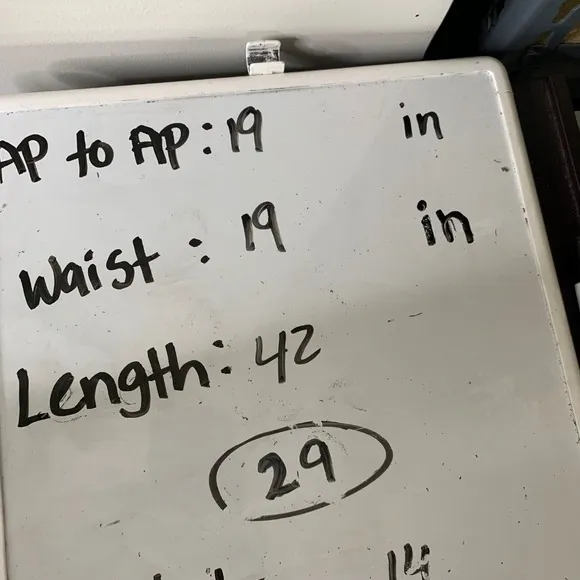 AP to AP: 19 in
Waist: 19 in
Length: 42
29
14